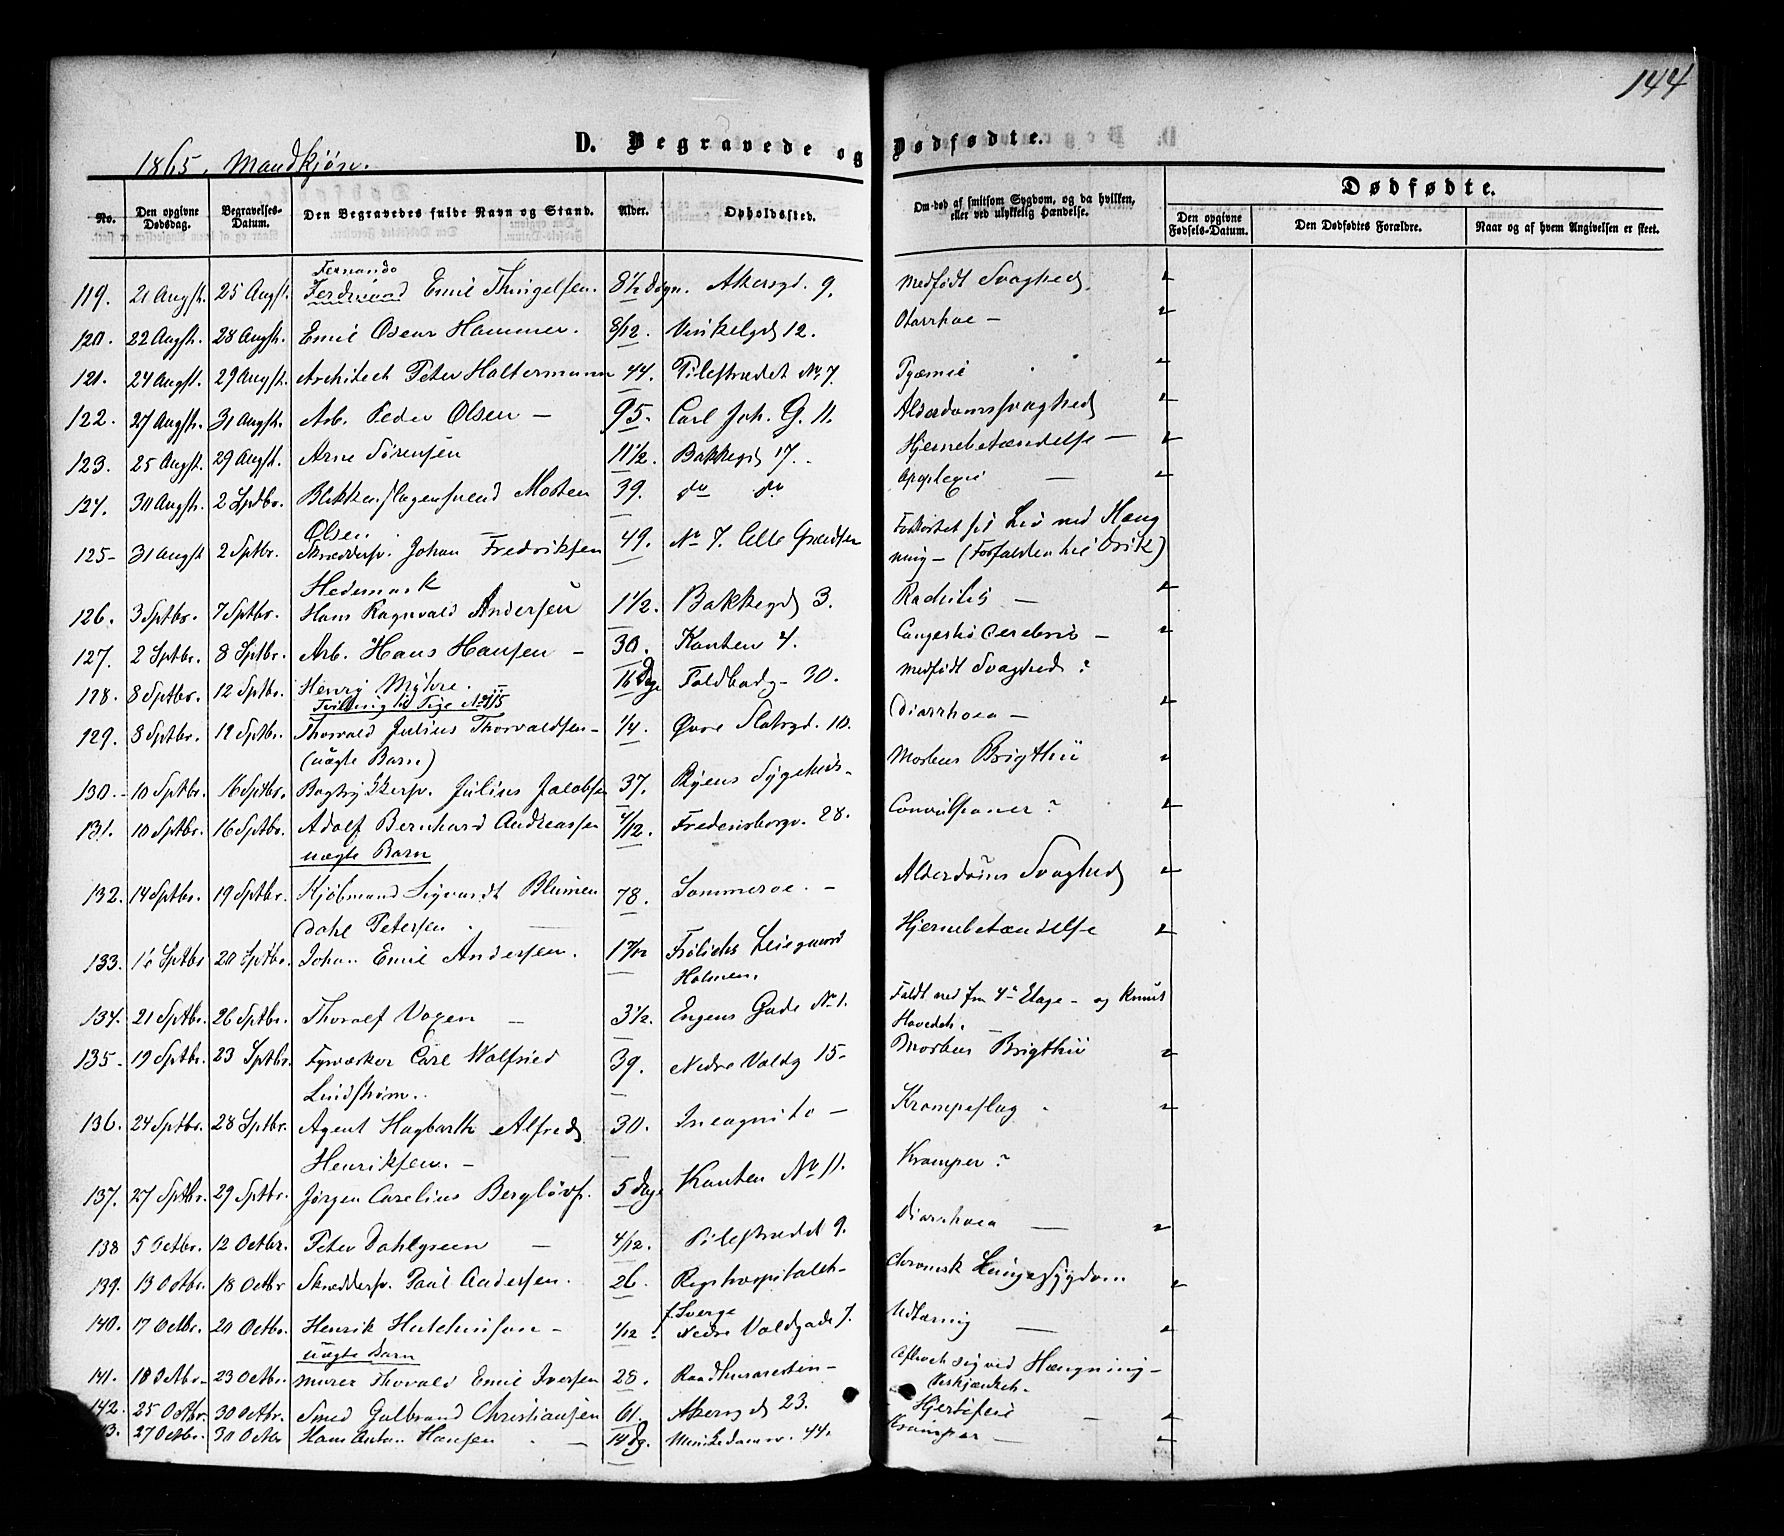 144
D. Begravede og Dødfødte.
1865. Mandkjøn.
No. Den opgivne Dødsdag. Begravelses-Datum. Den Begravedes fulde Navn og Stand. Alder. Opholdssted. Om død af smitsom Sygdom, og da hvilken, eller ved ulykkelig Hændelse. Dødfødte.
Den opgivne Fødsels-Datum. Den Dødfødtes Forældre. Naar og af hvem Angivelsen er skeet.
Fernando
119. 21 Augst. 25 Augst. Ferdinand Emil Thingelsen. 8½ Døgn. Akersgd. 9. Medfødt Svaghed.
120. 22 Augst. 28 Augst. Emil Oscar Hammer. 8/12. Vinkelgd 12. Diarrhoe -
121. 24 Augst. 29 Augst. Architect Peter Holtermann 44. Pilestrædet No. 7. Pyæmie
122. 27 Augst. 31 Augst. Arb. Peder Olsen - 95. Carl Joh. G. 11. Alderdomssvaghed
123. 25 Augst. 29 Augst. Arne Sørensen 11½. Bakkegd 17. Hjernebetændelse -
124. 30 Augst. 2 Septbr. Blikkenslagersvend Morten 39. do do Apoplexie -
Olsen.
125- 31 Augst 2 Sptbr. Skrædersv. Johan Fredriksen 49. No 7. Lille Grændsen Forkortet sit Liv ved Hæng
Hedemark ning - (Forfalden til Drik)
126. 3 Sptbr. 7 Sptbr. Hans Ragnvald Andersen 1½. Bakkegd 3. Rachitis -
127. 2 Sptbr. 8 Sptbr. Arb. Hans Hansen - 30. Kanten 4. Congestio Cerebri -
128. 8 Sptbr. 12 Sptbr. Henrij Myhre. 16 Dage Foldbadg - 30. Medfødt Svaghed ?
Tvilling til Pige No 115
129. 8 Sptbr. 12 Sptbr. Thorvald Julius Thorvaldsen - ¼. Øvre Slotsgd. 10. Diarrhoea -
(uægte Barn)
130. - 10 Sptbr. 16 Sptbr. Bogtrykkersv. Julius Jacobsen 37. Byens Sygehus - Morbus Brigthii
131. 10 Sptbr. 16 Sptbr. Adolf Bernhard Andreassen 4/12. Fredensborgv. 28. Convulsioner ?
uægte Barn
132. 14 Sptbr. 19 Sptbr. Kjøbmand Sigvardt Blumen 78. Sommeroe. - Alderdoms Svaghed
Dahl Petersen.
133. 16 Sptbr 20 Sptbr. Johan Emil Andersen. 1 7/12 Frølichs Leiegaard Hjernebetændelse
Holmen.
134. 21 Sptbr. 26 Sptbr. Thoralf Vogen - 3½. Engens Gade No 1. Faldt ned fra 4de Etage - og knust
Hovedet.
135. 19 Sptbr. 23 Sptbr. Fyrværker Carl Walfried 39. Nedre Voldg 15 - Morbus Brigthii
Lindstrøm.
136. 24 Sptbr. 28 Sptbr. Agent Hagbarth Alfred 30. Incognito - Krampeslag
Henriksen. -
137. 27 Sptbr. 29 Sptbr. Jørgen Carelius 5 Dage Kanten No 11. Kramper ?
138 5 Octbr. 12 Octbr. Peter Dahlgreen - 4/12. Pilestrædet 9. Diarrhoea -
139. 13 Octbr. 18 Octbr Skreddersv. Paul Andersen. 26. Rigshospitalet - Chronisk Lungesygdom
f. Sverge
140. 17 Octbr. 20 Octbr. Henrik Hutchinson - 1/12. Nedre Voldgade 7. Udtæring -
uægte Barn
141. 18 Octbr - 23 Octbr. Murer Thorvald Emil Iversen 28. Raadhusarresten - Aflivet sig ved Hængning -
Beskjænket.
142. 25 Octbr. 30 Octbr. Smed Gulbrand Christiansen 61. Akersgd 23. Hjertefeil -
3. 27 Octbr. 30 Octbr Hans Anton Hansen - 14 Dg. Munkedamsv. 44. Kramper -